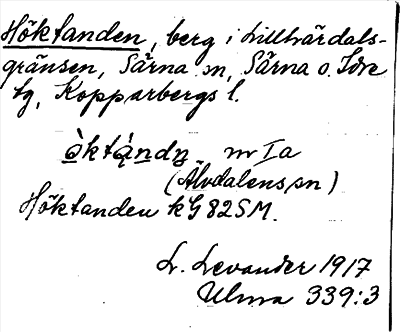 Höktanden, berg i Lillhärdals-
gränsen, Särna sn, Särna o. Idre
tg, Kopparbergs l.
ò̱ktą̀ndn̥ nr Ia
(Älvdalens sn)
Höktanden kG82SM.
L. Levander 1917
Ulma 339:3